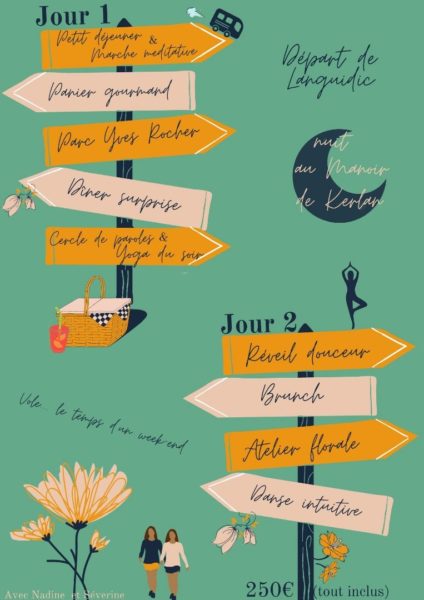 Jour 1
Petit déjeuner &
Marche meditative
Panier gourmand
Parc Yves Rocher
Dîner surprise
Cercle de paroles &
Yoga du soir
Départ de
Languidic
nuit
au Manoir
de Kerlan
Jour 2
Réveil douceur
Brunch
Atelier florale
Danse intuitive
Vole... le temps d'un week-end
Avec Nadine et Séverine
250€ (tout inclus)